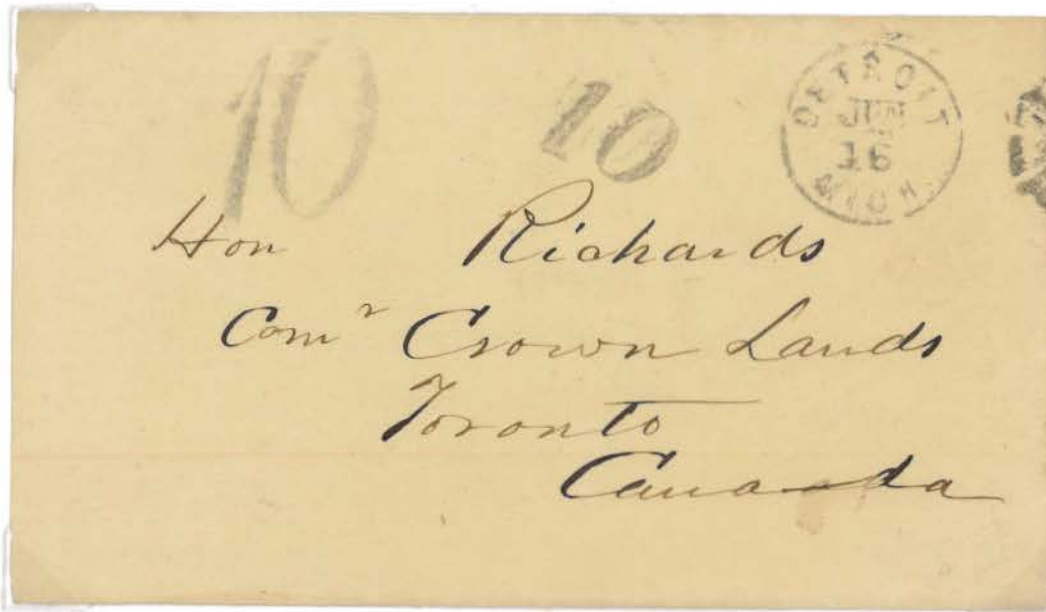 10 10
DETROIT
JUN
16
MICH.
Hon Richards
Comr Crown Lands
Toronto
Canada